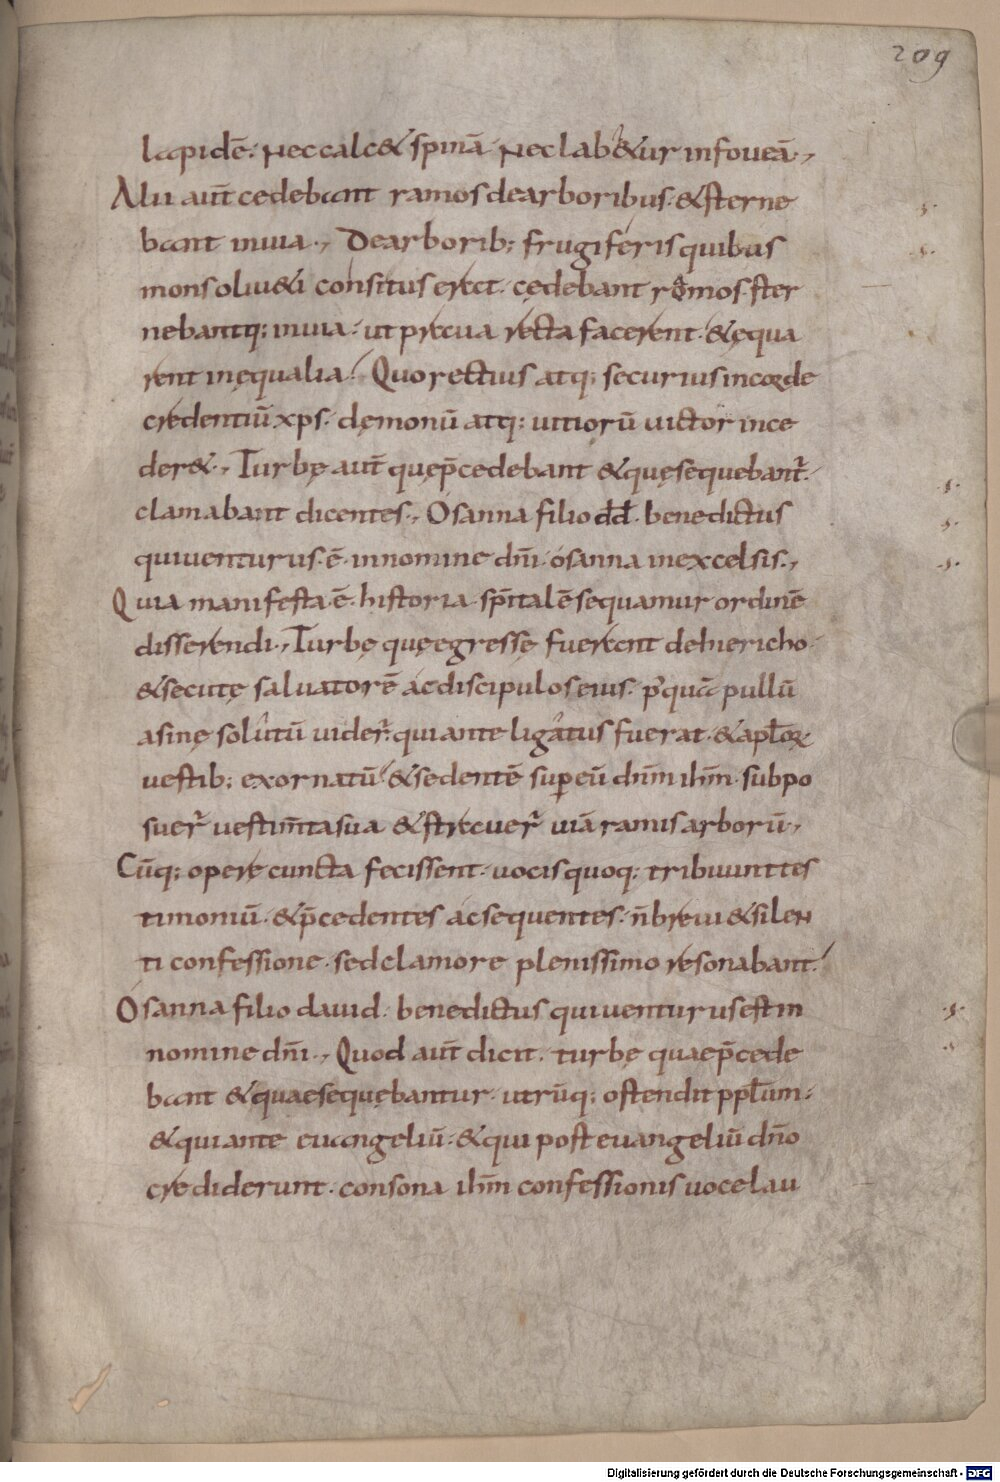 209
lapidē· Nec calc& spinā· Nec lab&ur in foveā·,
Alii aūt cedebant ramos de arboribus· & sterne
bant in uia·, De arborib; frugiferis quibus
mons oliu&i consitus erat· cędebant ramos· ster
nebantq; in uia· ut praua recta facerent· & ęqua
rent inęqualia· Quo rectius atq; securius in corde
credentiū xps· dęmonū atq; uitiorū uictor ince
der&·, Turbę aūt quę p̄cedebant & quę sequebant̄·
clamabant dicentes·, Osanna filio dd̄· benedictus
qui uenturus· ē· in nomine dn̄i· osanna in excelsis·,
Quia manifesta· ē· historia· sp̄italē sequamur ordinē
disserendi·, Turbę quę egressę fuerant de hiericho·
& secutę saluatorē ac discipulos eius· p'quā pullū
asinę solutū uider̄· qui ante ligatus fuerat· & apl̄oꝝ
uestib; exornatū & sedentē super eū dn̄m ih̄m· subpo
suer̄ uestim̄ta sua & strauer̄ uiā ramis arborū·,
Cūq; opere cuncta fecissent· uocis quoq; tribuunt tes
timoniū· & p̄cedentes ac sequentes· n̄ breui & silen
ti confessione· sed clamore plenissimo resonabant·
Osanna filio dauid· benedictus qui uenturus est in
nomine dn̄i·, Quod aūt dicit· turbę quae p̄cede
bant & quae sequębantur· utrūq; ostendit ppl̄um·
& qui ante euangeliū· & qui post euangeliū dn̄o
crediderunt· consona ih̄m confessionis uoce lau
Digitalisierung gefördert durch die Deutsche Forschungsgemeinschaft - DFG